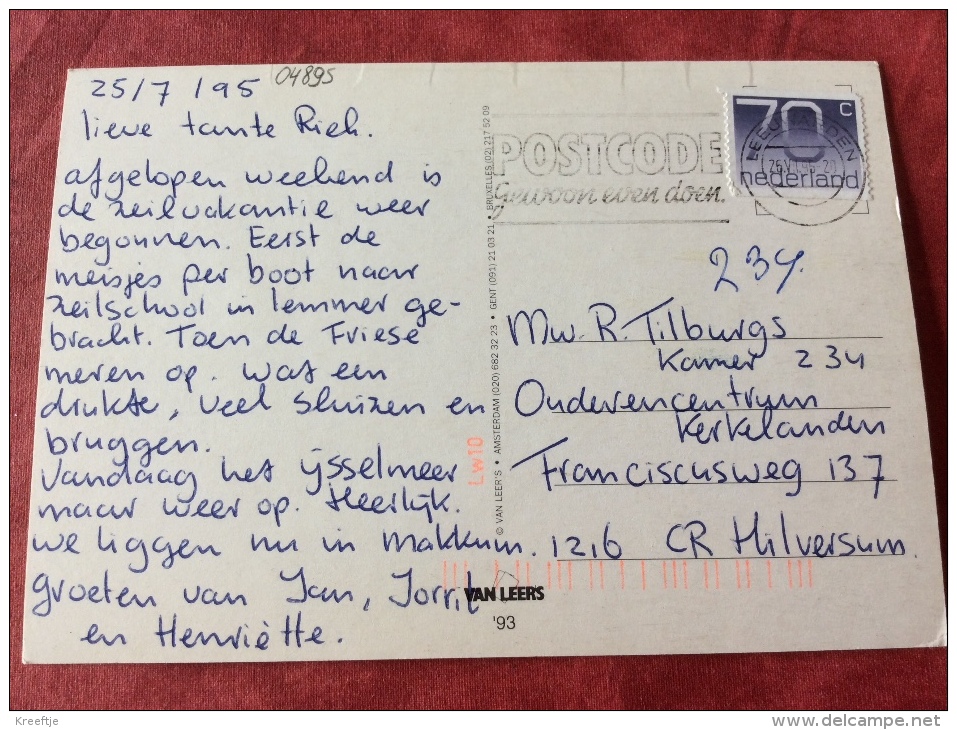 25/7/95
04895
lieve tante Rieh.
afgelopen weekend is
de zeilvakantie weer
begonnen. Eerst de
meisjes per boot naar
zeilschool in lemmer ge-
bracht. Toen de Friese
meren op. wat een
drukte, veel sluizen en
bruggen.
Vandaag het ijsselmeer
maar weer op. Heerlijk.
we liggen nu in makkum.
groeten van Jan, Jorrit
en Henriëtte.
LW10
© VAN LEER'S • AMSTERDAM (020) 682 32 23 • GENT (091) 21 03 21 • BRUXELLES (02) 217 52 09
POSTCODE
Gewoon even doen.
70 c
nederland
LEEUWARDEN
234.
Mw. R. Tilburgs
Kamer 234
Ouderencentrum
Kerkelanden
Franciscusweg 137
1216 CR Hilversum.
VAN LEERS
'93
Kreeftje
www.delcampe.net